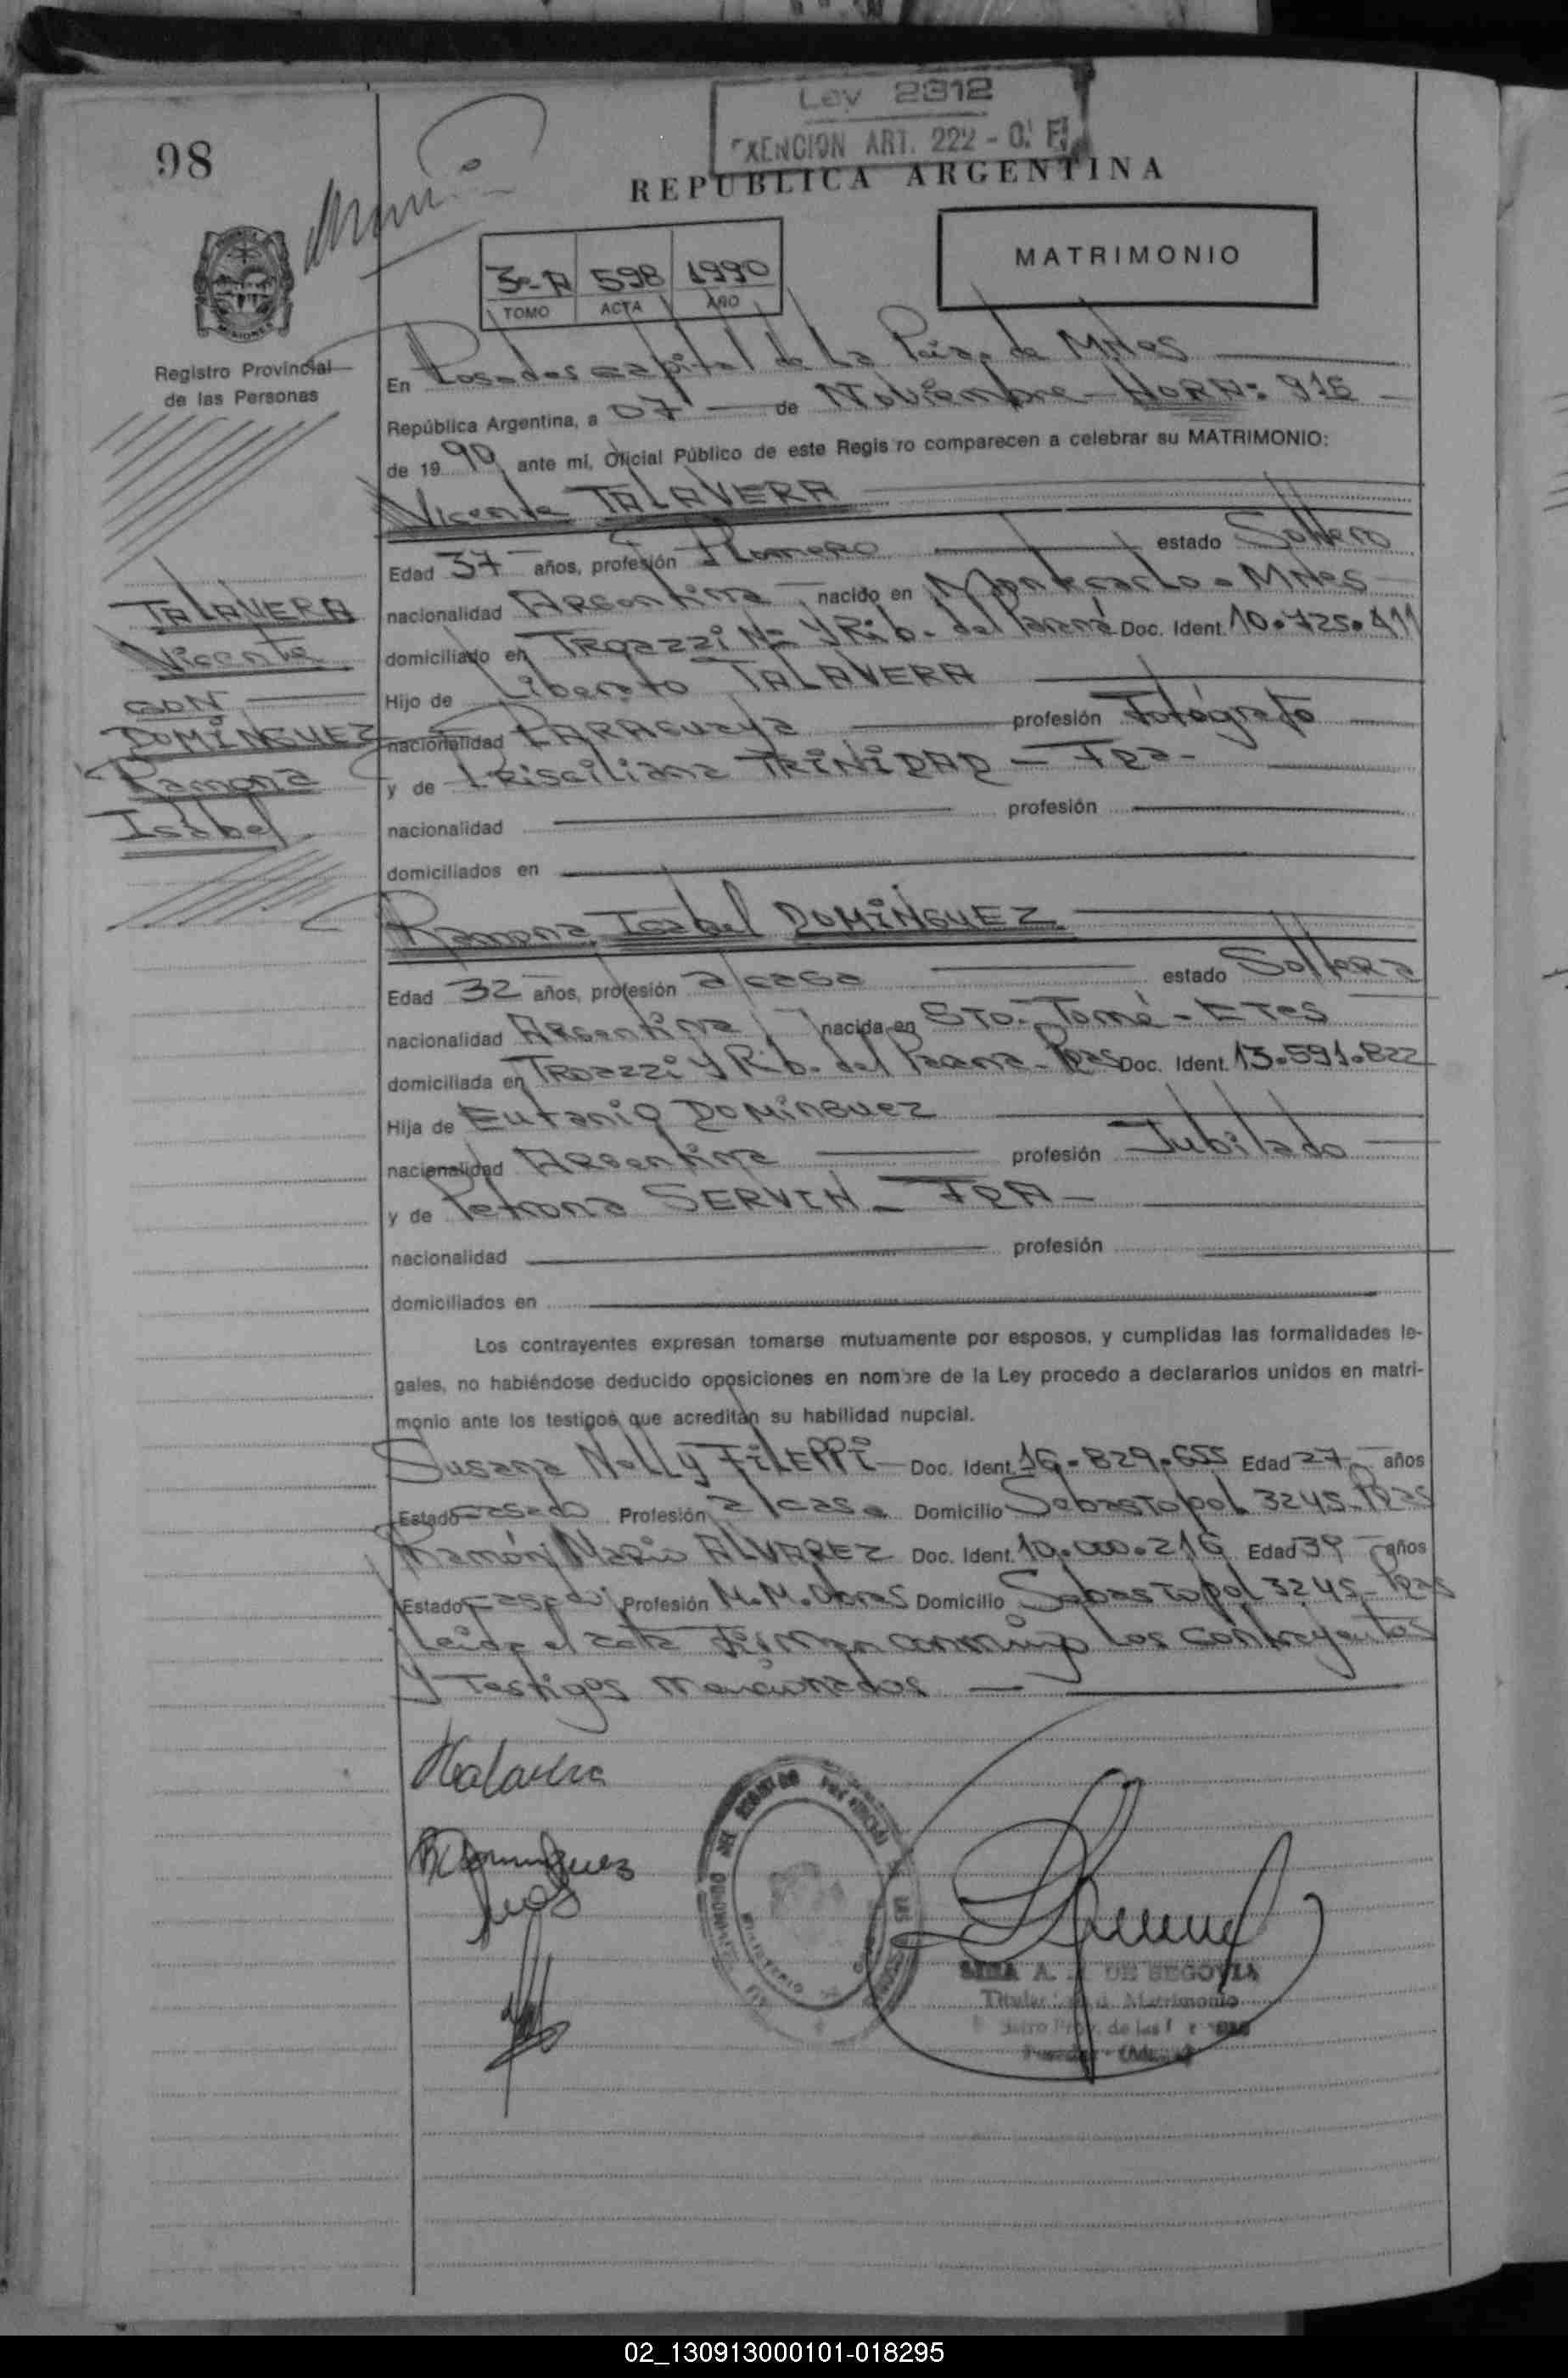 Ley 2312
EXENCION ART. 222 - O. F.
98
REPUBLICA ARGENTINA
MATRIMONIO
3º-A 598 1990
TOMO ACTA AÑO
Registro Provincial
de las Personas
TALAVERA
Vicente
CON
DOMINGUEZ
Ramona
Isabel
En Posadas capital de La Pcia. de Mnes
República Argentina, a 07 de Noviembre - HORA: 915
de 1990 ante mi, Oficial Público de este Regis ro comparecen a celebrar su MATRIMONIO:
Vicente TALAVERA
Edad 37 años, profesión Plomero estado Soltero
nacionalidad Argentina nacido en Montecarlo - Mnes
domiciliado en Trozzi Nº y Rib. del Paraná Doc. Ident. 10.725.411
Hijo de Liberato TALAVERA
nacionalidad PARAGUAYA profesión Fotógrafo
y de Prisciliana TRINIDAD -
nacionalidad profesión
domiciliados en
Ramona Isabel DOMINGUEZ
Edad 32 años, profesión a/casa estado Soltera
nacionalidad Argentina nacida en Sto. Tomé - Ctes
domiciliada en y Rib. del Parana - Pdas Doc. Ident. 13.591.822
Hija de DOMINGUEZ
nacionalidad Argentina profesión Jubilado
y de Petrona SERVIN -
nacionalidad profesión
domiciliados en
Los contrayentes expresan tomarse mutuamente por esposos, y cumplidas las formalidades le-
gales, no habiéndose deducido oposiciones en nombre de la Ley procedo a declararlos unidos en matri-
monio ante los testigos que acreditan su habilidad nupcial.
Susana Nelly FILEPPI Doc. Ident. 16.829.655 Edad 27 años
Estado casada Profesión a/casa Domicilio Sebastopol 3245 - Pdas
Ramón Mario ALVAREZ Doc. Ident. 10.000.216 Edad 39 años
Estado casado Profesión M.M. Obras Domicilio Sebastopol 3245 - Pdas
Leida el acta firman conmigo los contrayentes
y Testigos mencionados
Talavera
R Dominguez
A. DE SEGOVIA
Titular Matrimonio
02_130913000101-018295